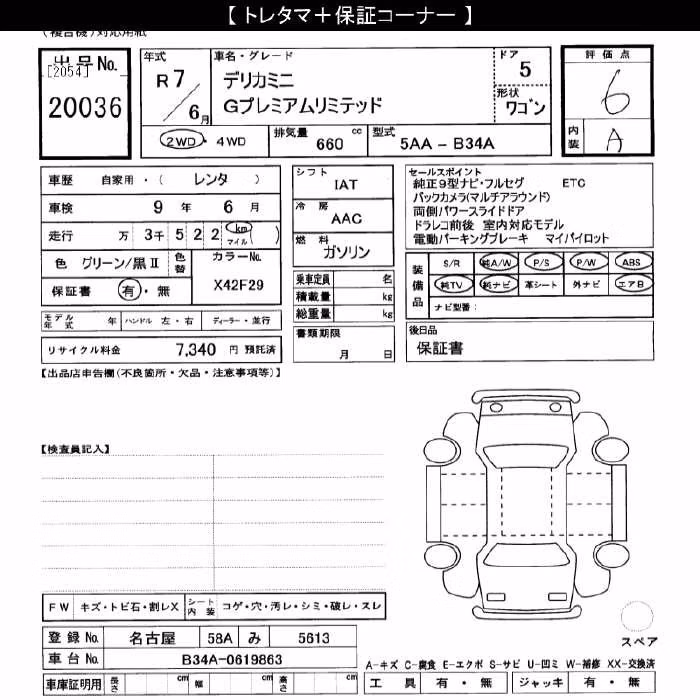 【 トレタマ＋保証コーナー 】
(複合機)対応用紙
出品No.
[2054]
20036
年式
R 7/6月
車名・グレード
デリカミニ
Gプレミアムリミテッド
ドア
5
形状
ワゴン
2WD・4WD
排気量 660 cc
型式 5AA - B34A
評価点
6
内装 A
車歴 自家用・( レンタ )
車検 9 年 6 月
走行 万 3千 5 2 2 km マイル ( )
色 グリーン/黒Ⅱ
色替
カラーNo.
X42F29
保証書 有・無
モデル年式 年 ハンドル 左・右 ディーラー・並行
リサイクル料金 7,340 円 預託済
シフト
IAT
冷房
AAC
燃料
ガソリン
乗車定員 名
積載量 kg
総重量 kg
書類期限
月 日
セールスポイント
純正9型ナビ・フルセグ ETC
バックカメラ(マルチアラウンド)
両側パワースライドドア
ドラレコ前後 室内対応モデル
電動パーキングブレーキ マイパイロット
装備品
S/R 純A/W P/S P/W ABS
純TV 純ナビ 革シート 外ナビ エアB
ナビ型番:
後日品
保証書
【出品店申告欄(不良箇所・欠品・注意事項等)】
【検査員記入】
FW キズ・トビ石・割レX シート内装 コゲ・穴・汚レ・シミ・破レ・スレ
登録 No. 名古屋 58A み 5613
車台 No. B34A-0619863
車庫証明用 長さ cm 幅 cm 高さ cm
スペア
A-キズ C-腐食 E-エクボ S-サビ U-凹ミ W-補修 XX-交換済
工具 有・無 ジャッキ 有・無